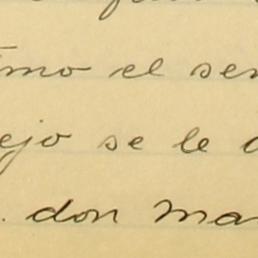 imo el sen
ejo se le d
. don ma